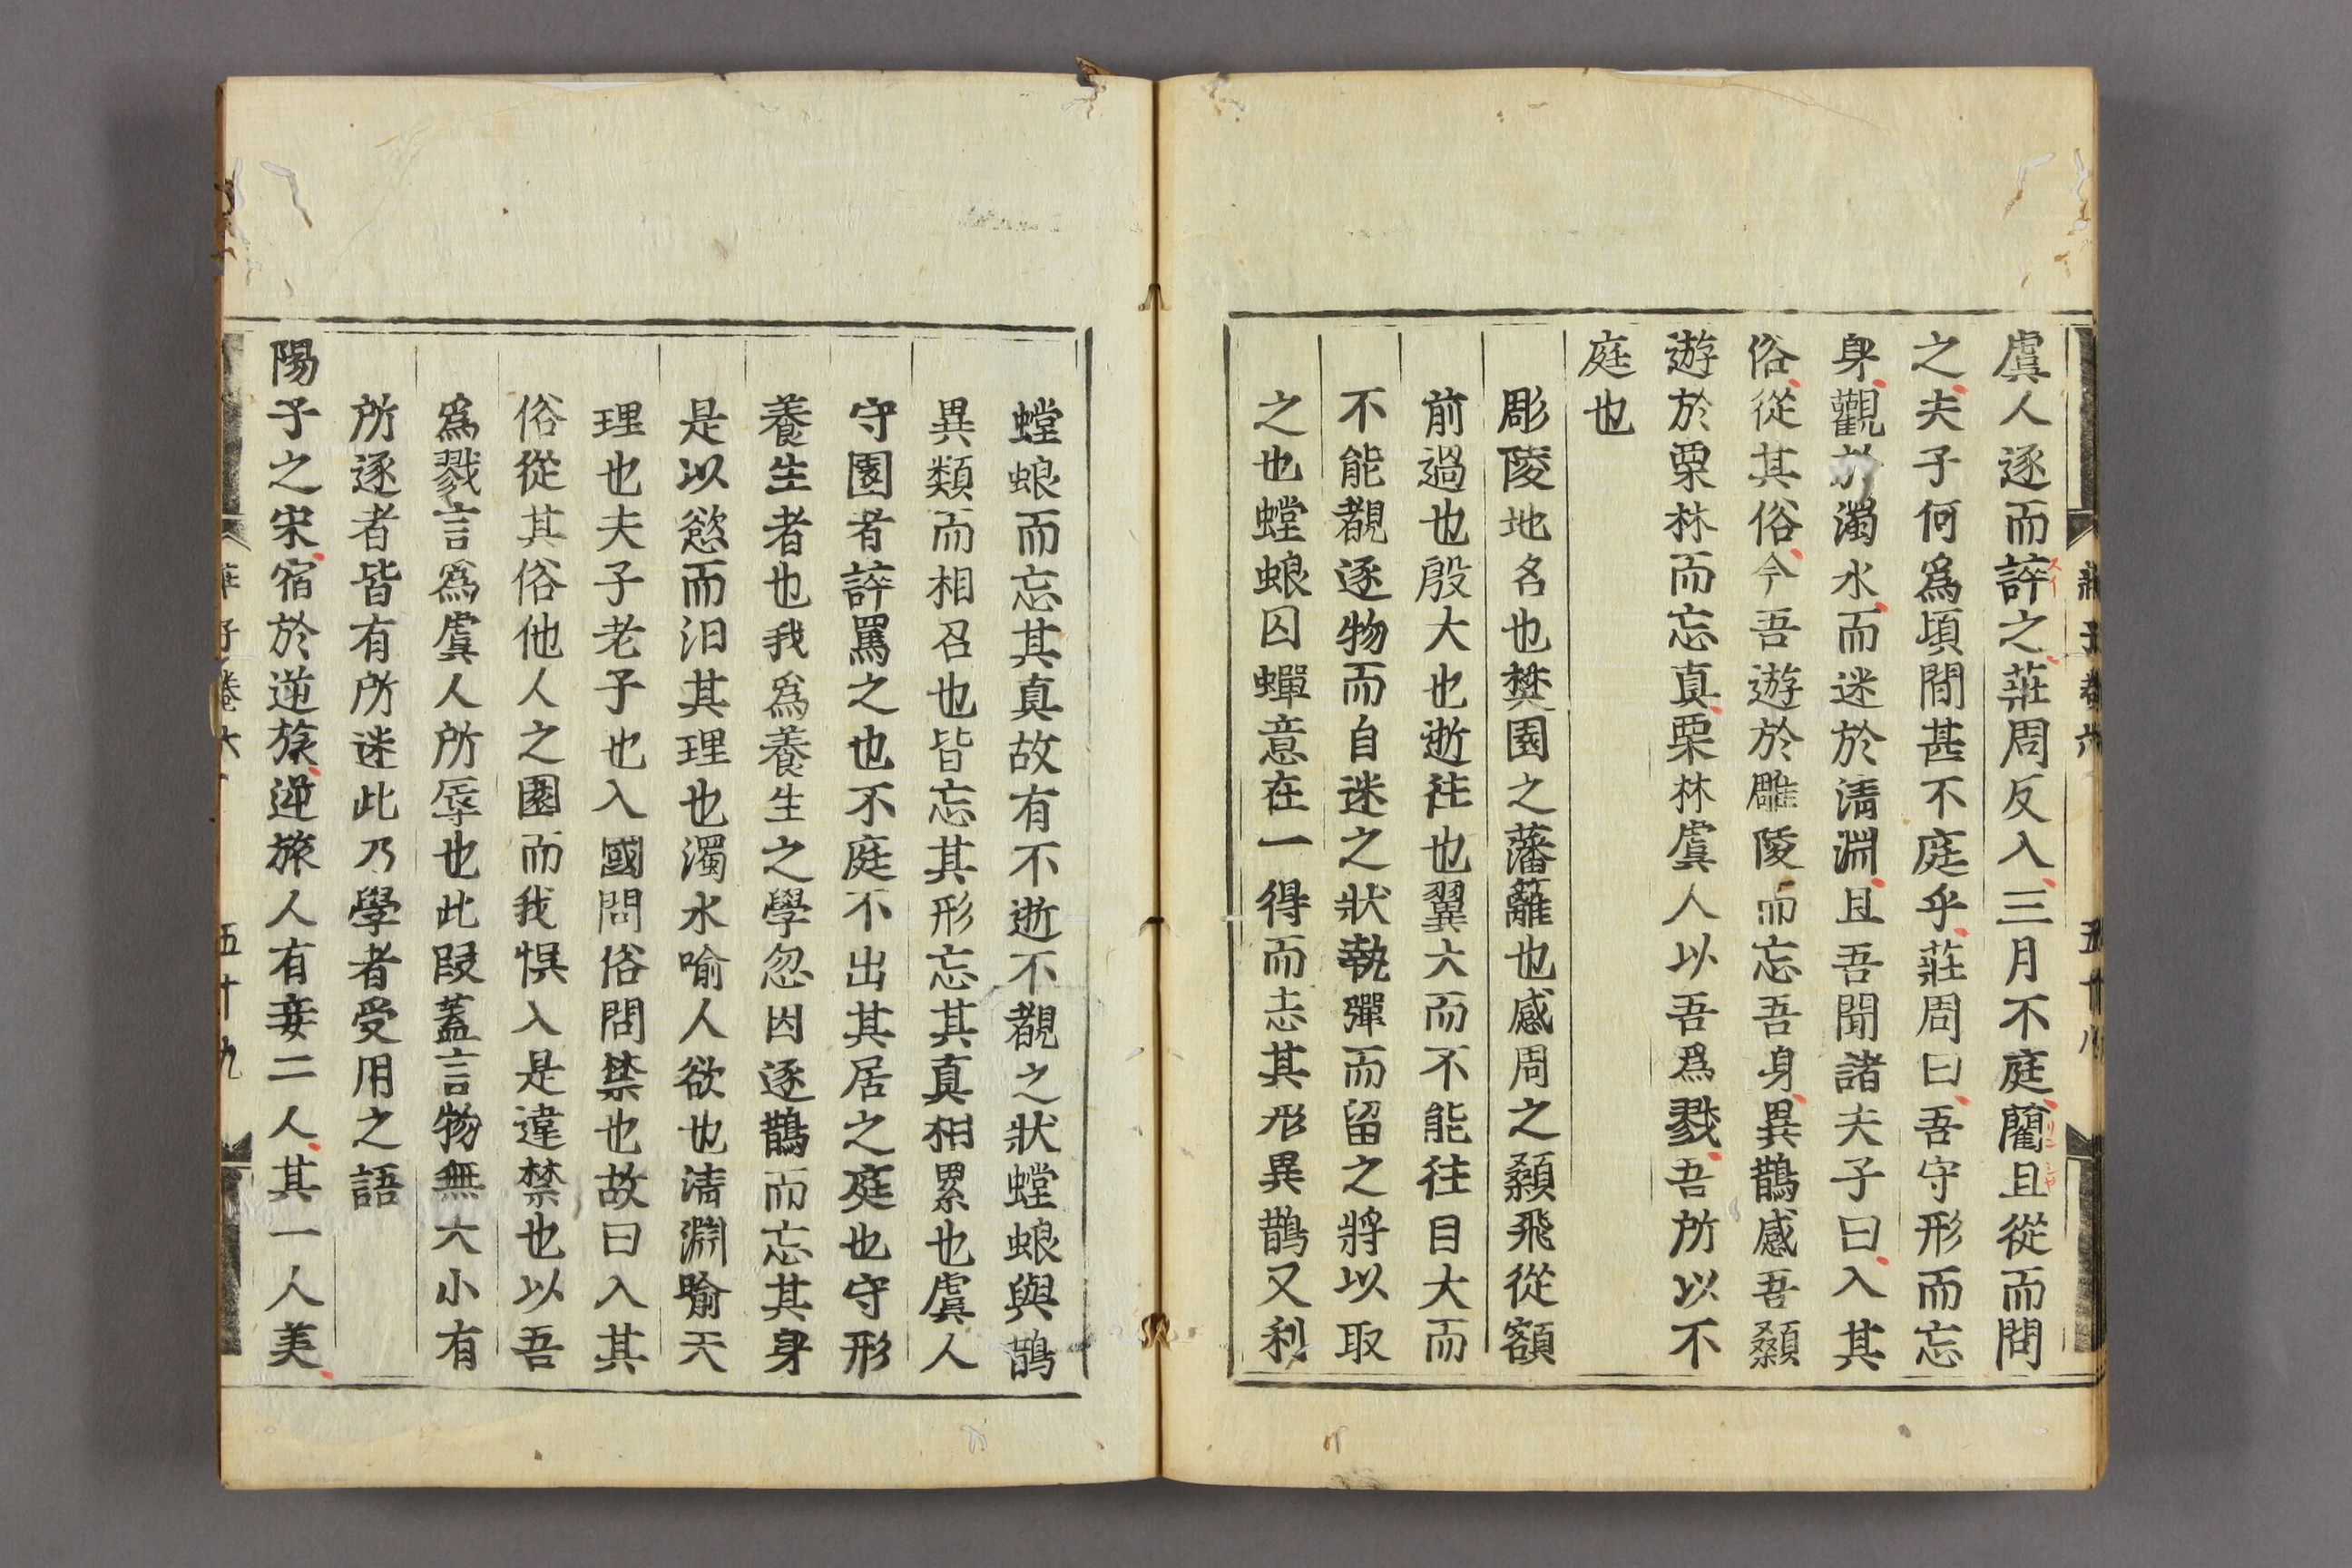 虞人逐而誶之莊周反入三月不庭藺且從而問
之夫子何爲頃間甚不庭乎莊周曰吾守形而忘
身觀於濁水而迷於清淵且吾聞諸夫子曰入其
俗從其俗今吾遊於雕陵而忘吾身異鵲感吾顙
遊於栗林而忘真栗林虞人以吾爲戮吾所以不
庭也
彫陵地名也樊園之藩籬也感周之顙飛從額
前過也殷大也逝往也翼大而不能往目大而
不能覩逐物而自迷之狀執彈而留之將以取
之也螳蜋囚蟬意在一得而忘其形異鵲又利
莊子卷六 五十八
螳蜋而忘其真故有不逝不覩之狀螳蜋與鵲
異類而相召也皆忘其形忘其真相累也虞人
守園者誶罵之也不庭不出其居之庭也守形
養生者也我爲養生之學忽因逐鵲而忘其身
是以慾而汩其理也濁水喻人欲也清淵喻天
理也夫子老子也入國問俗問禁也故曰入其
俗從其俗他人之園而我悞入是違禁也以吾
爲戮言爲虞人所辱也此段蓋言物無大小有
所逐者皆有所迷此乃學者受用之語
陽子之宋宿於逆旅逆旅人有妾二人其一人美
莊子卷六 五十九